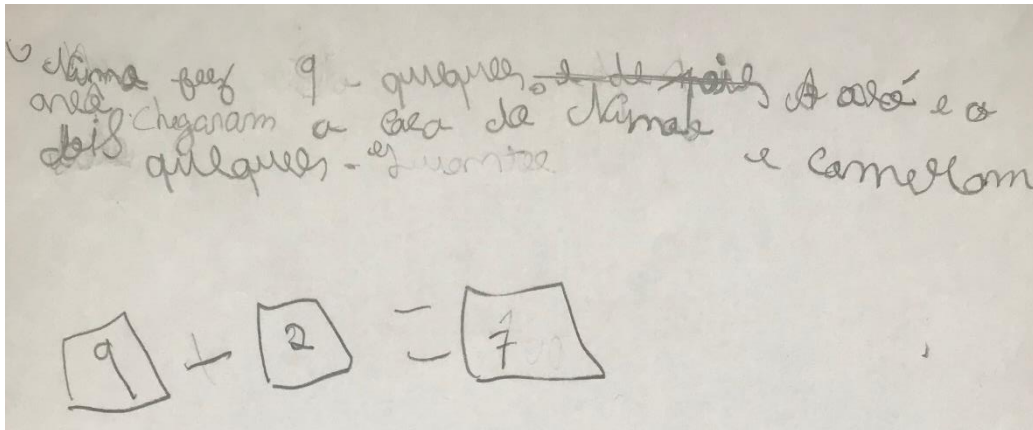 Nimna fez 9 queques. e de pois A avó e o
avô. Chegaram a casa da Nimna e comeram
dois queques. Quantos
9 - 2 = 7